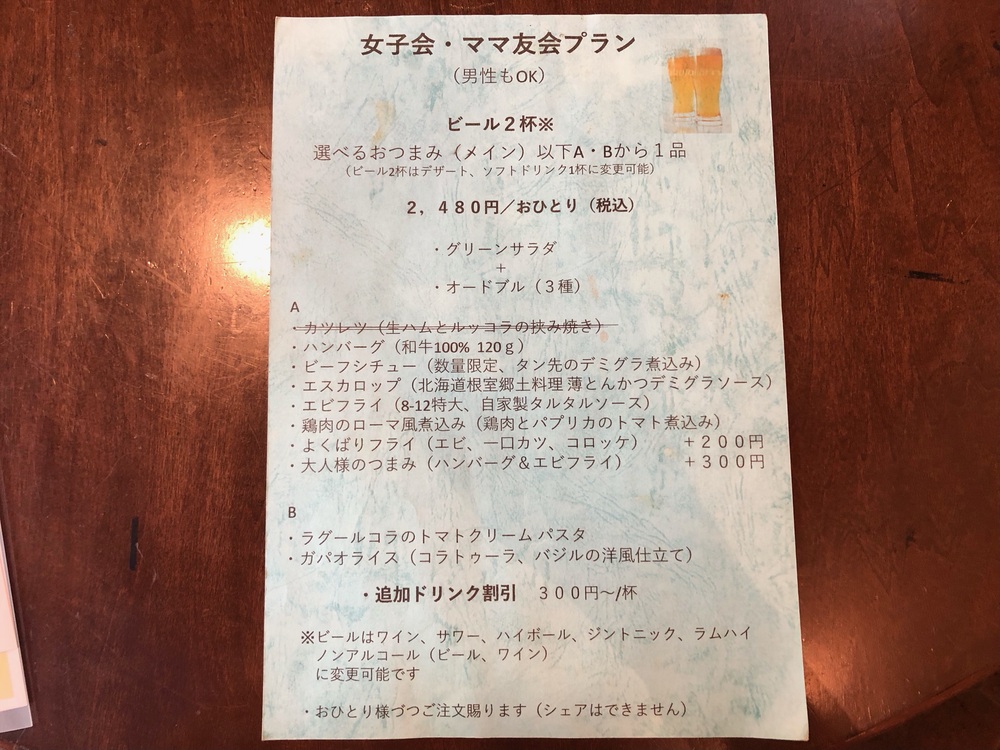 女子会・ママ友会プラン
（男性もOK）
ビール２杯※
選べるおつまみ（メイン）以下A・Bから１品
（ビール2杯はデザート、ソフトドリンク1杯に変更可能）
２，４８０円／おひとり（税込）
・グリーンサラダ
＋
・オードブル（３種）
A
・カツレツ（生ハムとルッコラの挟み焼き）
・ハンバーグ（和牛100% 120ｇ）
・ビーフシチュー（数量限定、タン先のデミグラ煮込み）
・エスカロップ（北海道根室郷土料理 薄とんかつデミグラソース）
・エビフライ（8-12特大、自家製タルタルソース）
・鶏肉のローマ風煮込み（鶏肉とパプリカのトマト煮込み）
・よくばりフライ（エビ、一口カツ、コロッケ）　＋２００円
・大人様のつまみ（ハンバーグ＆エビフライ）　＋３００円
B
・ラグールコラのトマトクリーム パスタ
・ガパオライス（コラトゥーラ、バジルの洋風仕立て）
・追加ドリンク割引　３００円～/杯
※ビールはワイン、サワー、ハイボール、ジントニック、ラムハイ
ノンアルコール（ビール、ワイン）
に変更可能です
・おひとり様づつご注文賜ります（シェアはできません）